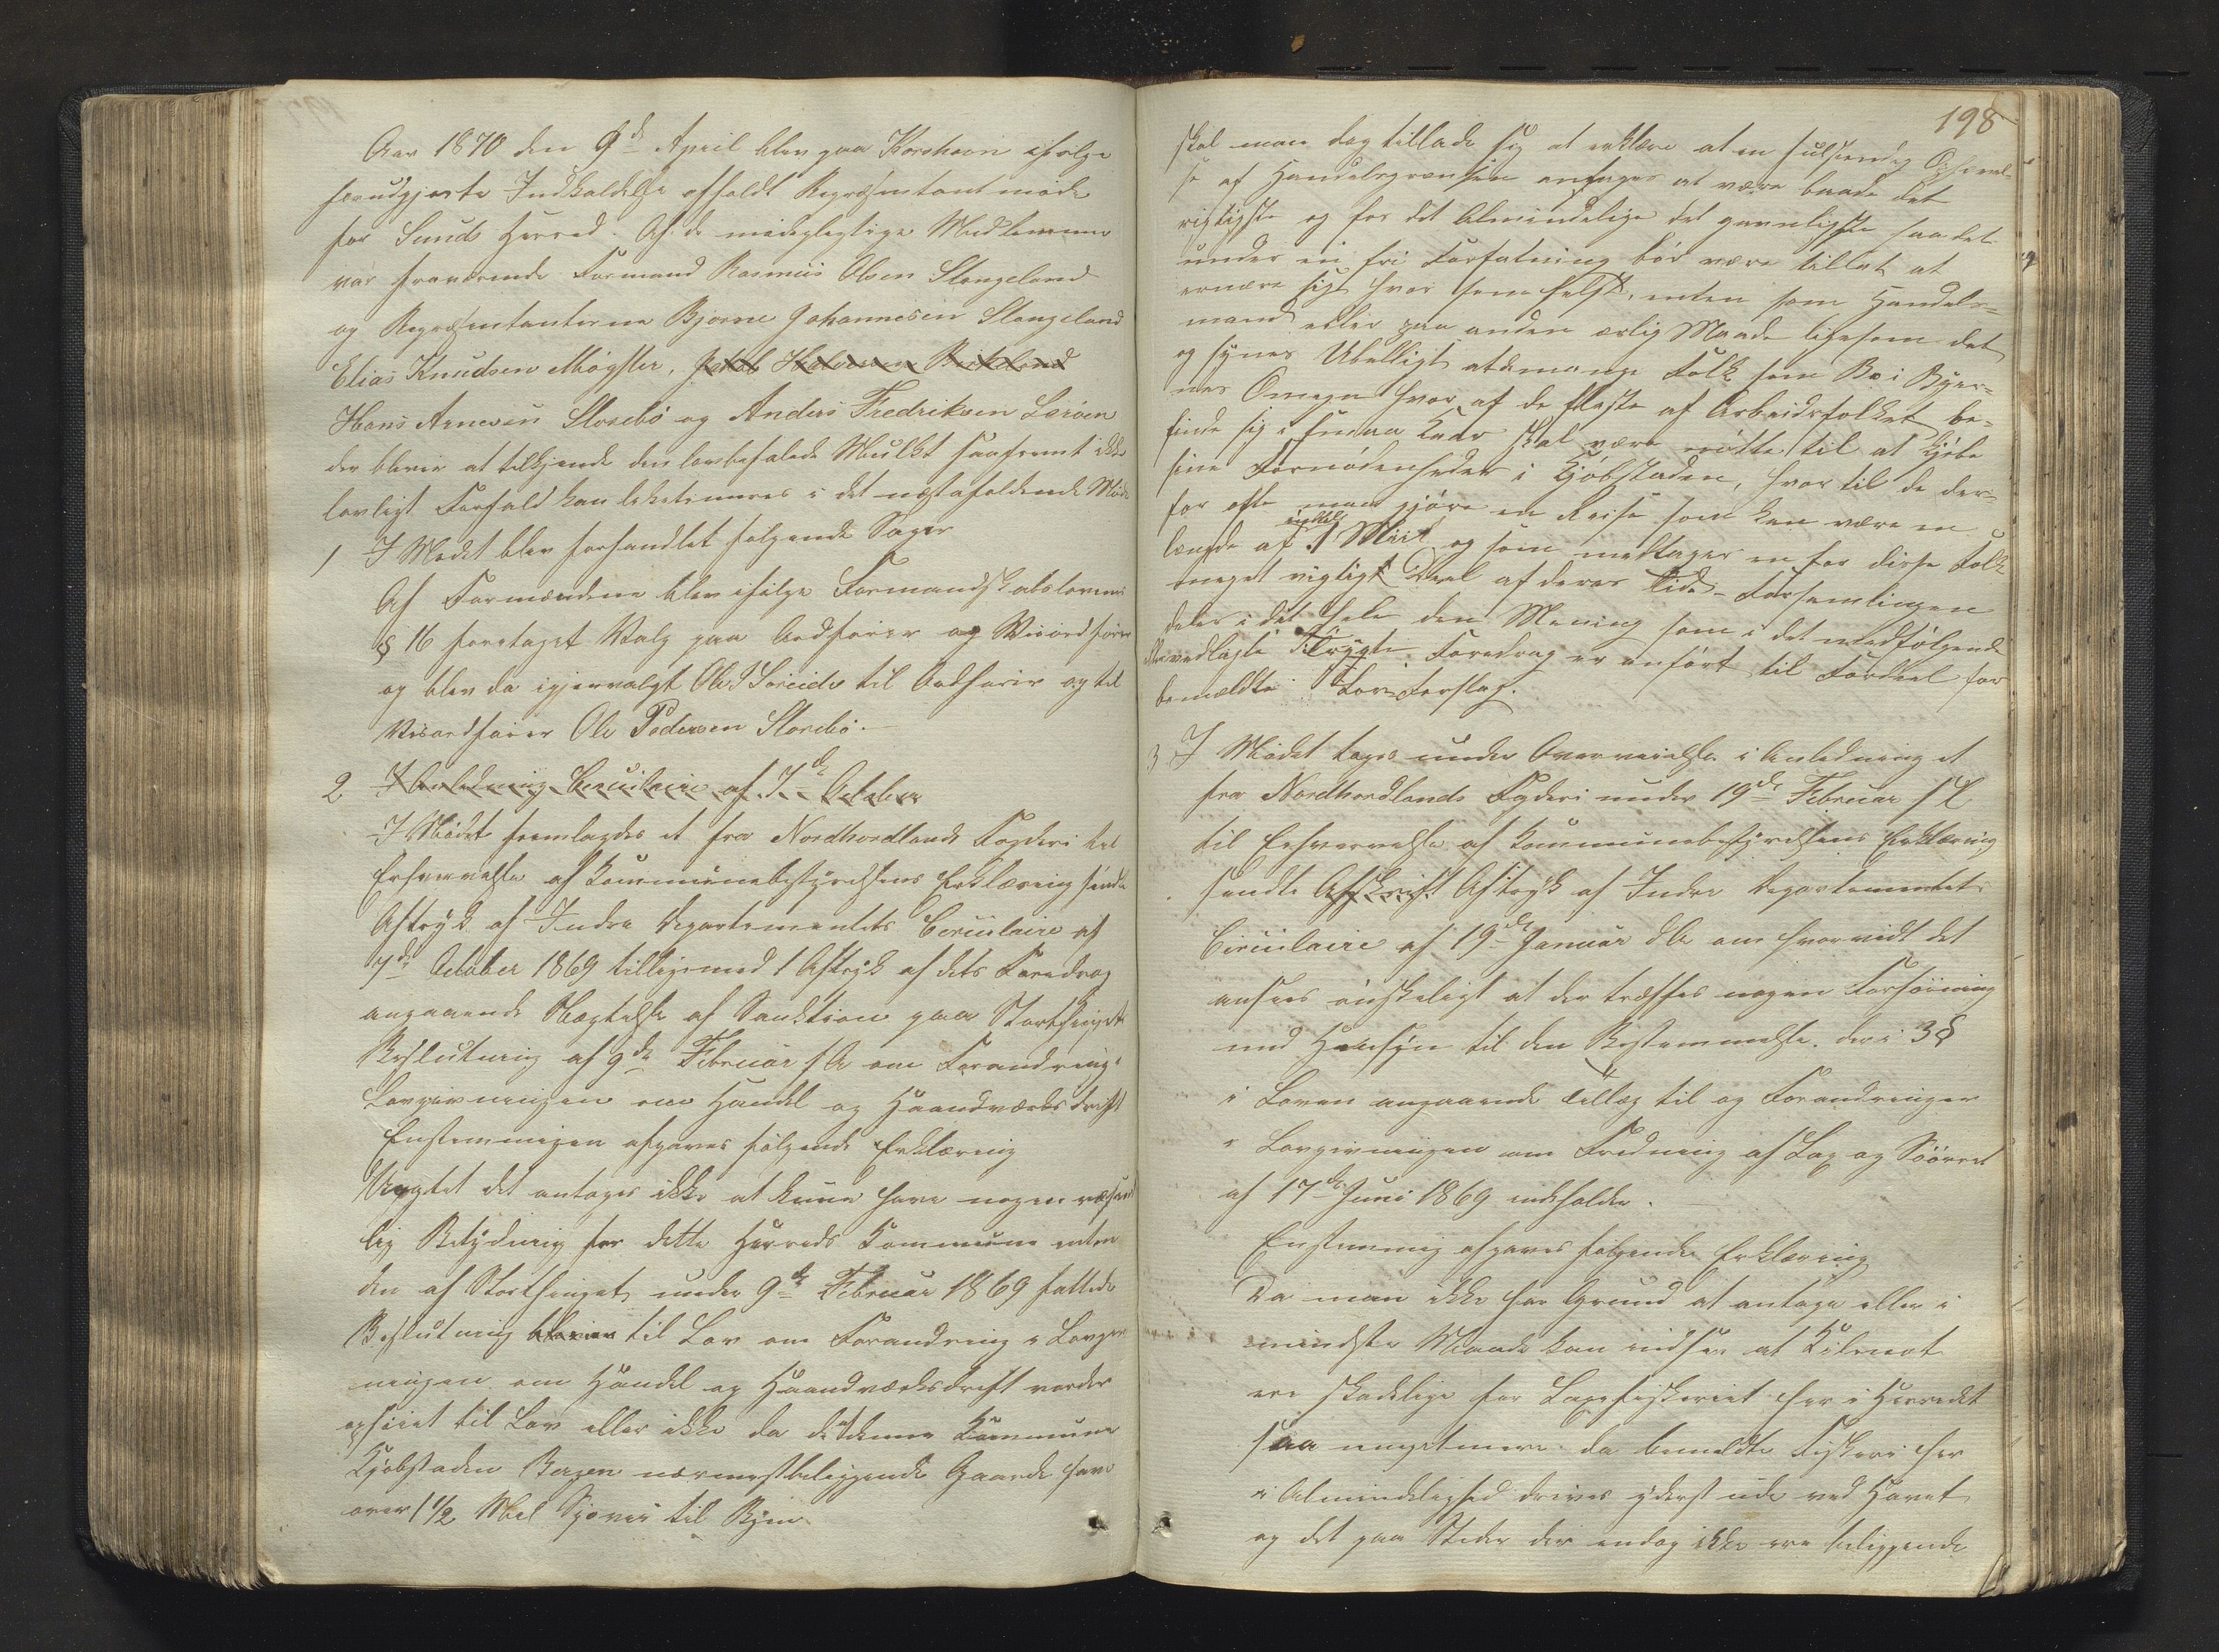 Aar 1870 den 9de April blev paa Korshavn ifølge
forudgjorte Indkaldelse afholdt Repræsentantmøde
for Sunds Herred. Af de mødepligtige Medlemmer
var fraværende Formand Rasmus Olsen Stangeland
og Repræsentanterne Bjørne Johannesen Stangeland
Elias Knudsen Møgster, Jakob Halvorsen Birkeland
Hans Arnesen Storebø og Anders Fredriksen Lerøen
der bliver at tilkjende den lovbefalede Mulkt saafremt ikke
lovligt Forfald kan lekitimeres i det næstafholdende Møde
1 I Mødet blev forhandlet følgende Sager
Af Formændene blev ifølge Formandskabslovens
§ 16 foretaget Valg paa Ordfører og Viseordfører
og blev da igjenvalgt Ole J Søreide til Ordfører og til
Viseordfører Ole Pedersen Storebø.
2 I Anledning Circulaire af 7de October
I Mødet fremlagdes et fra Nordhordlands Fogderi til
Erhvervelse af Kommunebestyrelsens Erklæring sendte
Aftryk af Indre Departementets Circulaire af
7de October 1869 tilligemed 1 Aftryk af dets Foredrag
angaaende Nægtelse af Sanktion paa Storthingets
Beslutning af 9de Februar s A om Forandring i
Lovgivningen om Handel og Haandværksdrift
Enstemmigen afgaves følgende Erklæring
Uagtet det antages ikke at kune have nogen væsent
lig Betydning for dette Herreds Kommune enten
den af Storthinget under 9de Februar 1869 fattede
Beslutning bliver til Lov om Forandring i Lovgiv
ningen om Handel og Haandværksdrift vorder
ophøiet til Lov eller ikke da de denne Kommune
Kjøbstaden Bergen nærmestbeliggende Gaarde have
over 1 1/2 Mil Sjøvei til Byen.
198
skal man dog tillade sig at erklære at en fulstendig Ophævel-
se af Handelsgrænsen antages at være baade det
rigtigste og for det Almindelige det gavnligste saa det
under en fri Forfatning bør være tillat at
ernære sigt hvor som helst, enten som Handels-
mand eller paa anden ærlig Maade ligesom det
og synes Ubelligt at de mange Folk som Bo i Byer-
nes Omegn hvor af de fleste af Arbeidsfolket be-
finde sig i smaa Kaar skal være nødte til at Kjøbe
sine Fornødenheder i Kjøbstaden, hvor til de der-
for ofte maa gjøre en Reise som kan være en
længde af indtil 1 Miil og som medtager en for disse Folk
meget vigtigt Deel af deres Tid - Forsamlingen
deler i det hele den Mening som i det medfølgende
vedlagte Trygte Foredrag er anført til Fordeel for
bemældte Lov-Forslag.
3 I Mødet toges under Overveielse i Anledning et
fra Nordhordlands Fogderi under 19de Februar s A
til Erhvervelse af Kommunebestyrelsens Erklæring
sendte Afskrift Aftryk af Indre Departementets
Circulaire af 19de Januar d A om hvorvidt det
ansees ønskeligt at der træffes nogen Forføining
med Hensyn til den Bestemmelse der i 3 §
i Loven angaaende Tillæg til og Forandringer
i Lovgivningen om Fredning af Lax og Søørret
af 17de Juni 1869 indeholder.
Enstemmig afgaves følgende Erklæring
Da man ikke har Grund at antage eller i
mindste Maade kan indse at Kilenot
ere skadelige for Laxefiskeriet her i Herredet
saa meget mere da bemeldte Fiskeri her
i Almindelighed drives yderst ude ved Havet
og det paa Steder der endog ikke ere beliggende